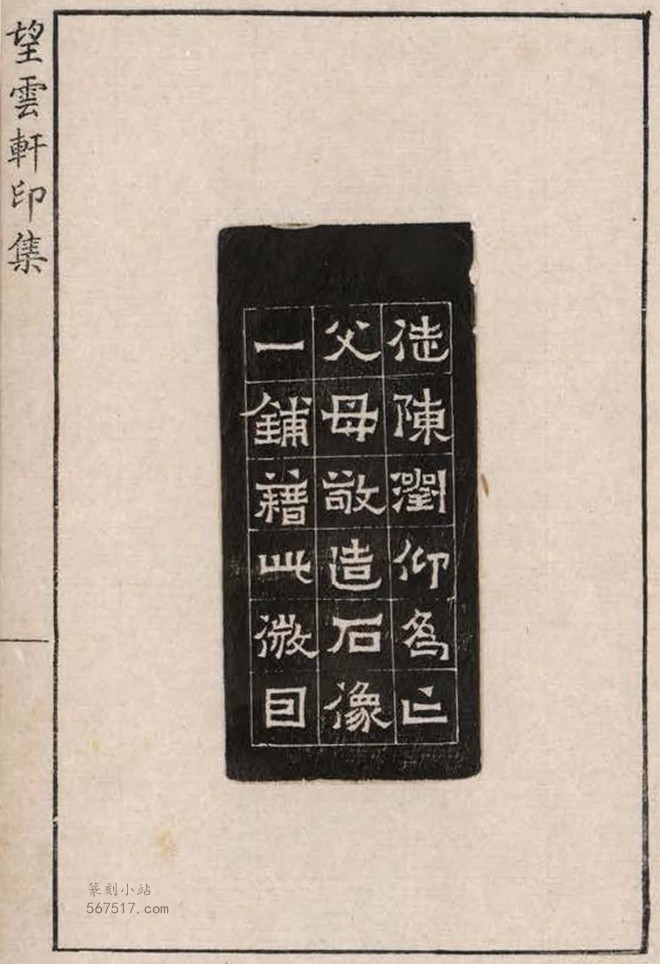 徒陳瀏仰為亡
父母敬造石像
一鋪藉此微囙
望雲軒印集
篆刻小站
567517.com